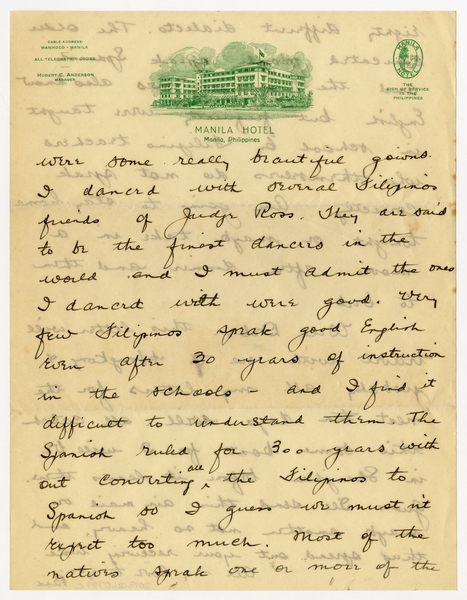 CABLE ADDRESS:
MANHOCO - MANILA
ALL TELEGRAPHIC CODES
HUBERT C. ANDERSON
MANAGER
MANILA
HOTEL
THE
SIGN OF SERVICE
IN THE
PHILIPPINES
MANILA HOTEL
Manila, Philippines
were some really beautiful gowns.
I danced with several Filipinos
friends of Judge Ross. They are said
to be the finest dancers in the
world and I must admit the ones
I danced with were good. Very
few Filipinos speak good English
even after 30 years of instruction
in the schools - and I find it
difficult to understand them. The
Spanish ruled for 300 years with
out converting all the Filipinos to
Spanish so I guess we mustn't
expect too much. Most of the
natives speak one or more of the